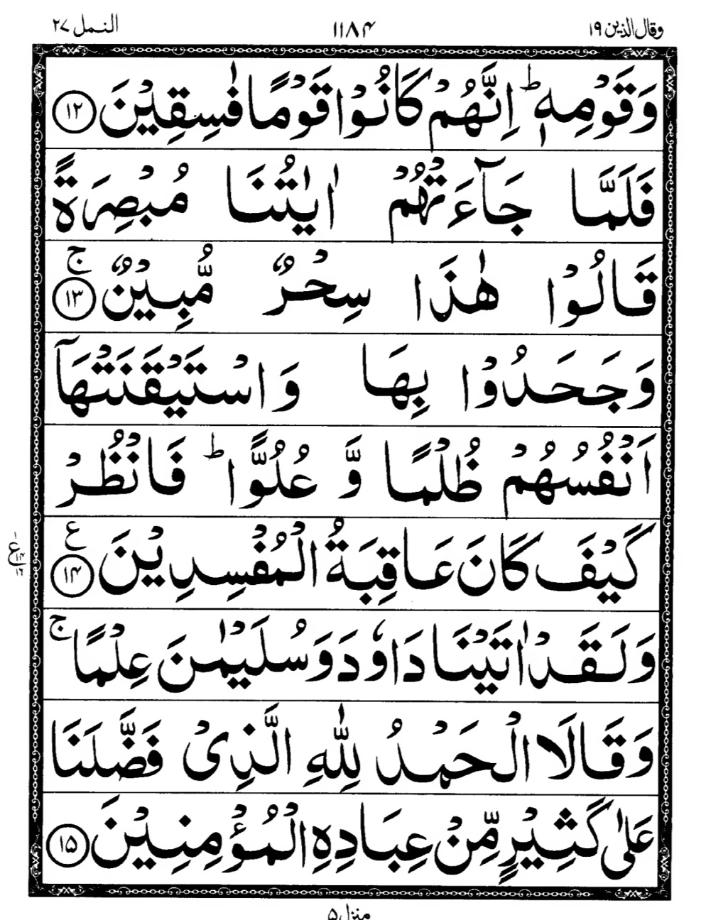 وقال الذین ۱۹
۱۱۸۴
النمل ۲۷
وَقَوْمِهٖ ؕ اِنَّهُمْ كَانُوْا قَوْمًا فٰسِقِیْنَ ﴿۱۲﴾
فَلَمَّا جَآءَتْهُمْ اٰیٰتُنَا مُبْصِرَةً
قَالُوْا هٰذَا سِحْرٌ مُّبِیْنٌ ﴿۱۳﴾ ۚ
وَجَحَدُوْا بِهَا وَاسْتَیْقَنَتْهَاۤ
اَنْفُسُهُمْ ظُلْمًا وَّ عُلُوًّا ؕ فَانْظُرْ
كَیْفَ كَانَ عَاقِبَةُ الْمُفْسِدِیْنَ ﴿۱۴﴾ ع
وَلَقَدْ اٰتَیْنَا دَاوٗدَ وَسُلَیْمٰنَ عِلْمًا ۚ
وَقَالَا الْحَمْدُ لِلّٰهِ الَّذِیْ فَضَّلَنَا
عَلٰی كَثِیْرٍ مِّنْ عِبَادِهِ الْمُؤْمِنِیْنَ ﴿۱۵﴾
منزل ۵